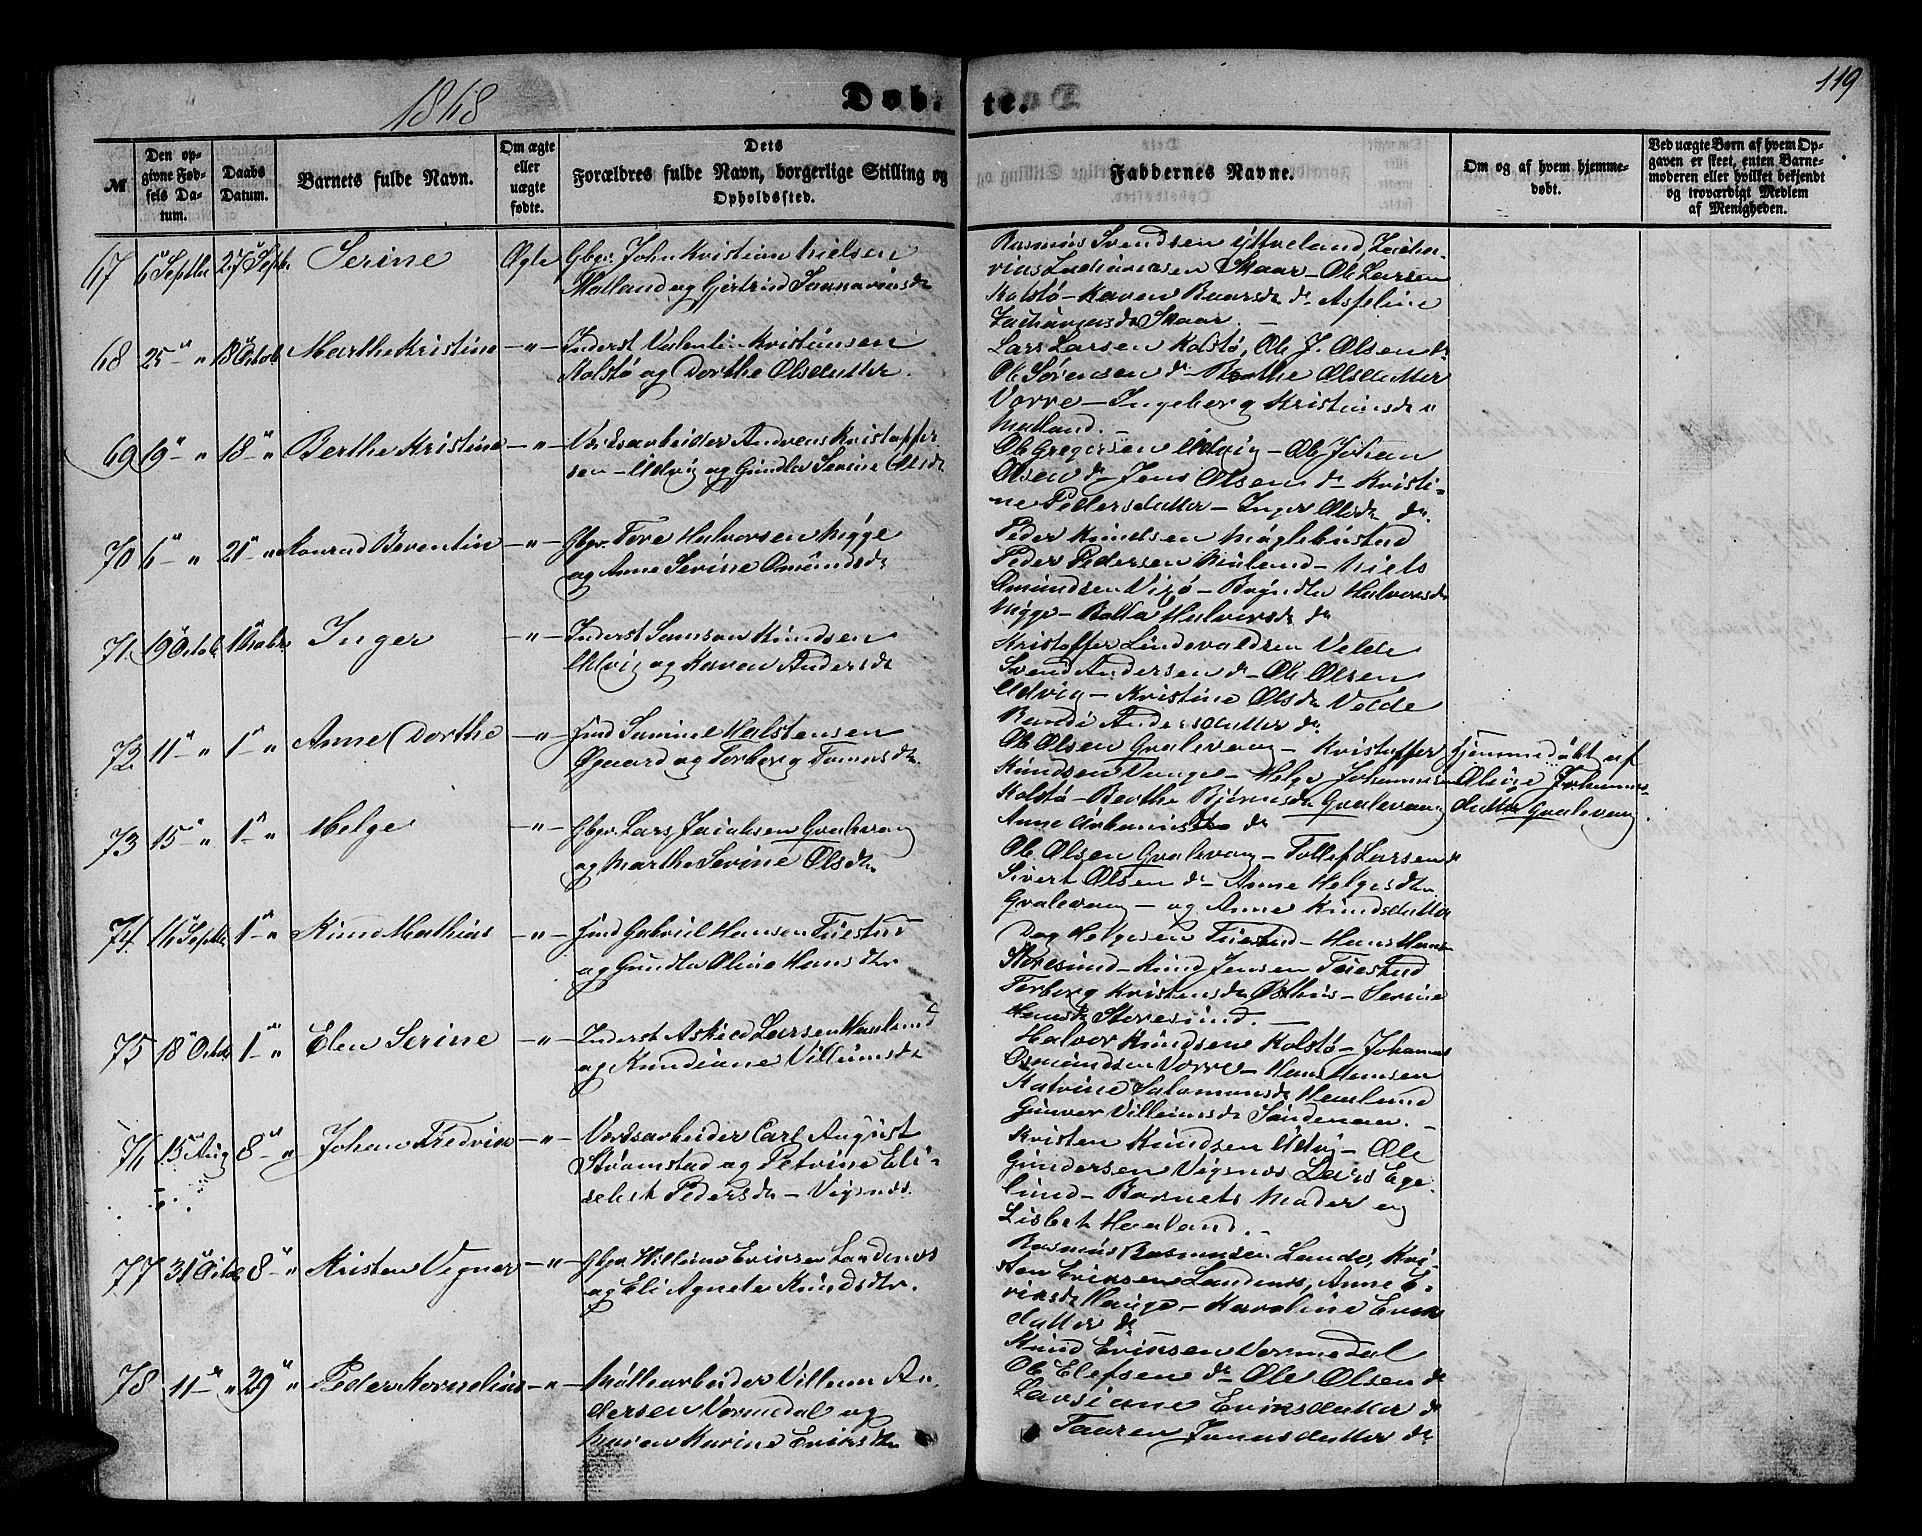 1868
Døb-
te.
119
№
Den op-
givne Fød-
sels Da-
tum.
Daabs
Datum.
Barnets fulde Navn.
Om ægte
eller
uægte
fødte.
Dets
Forældres fulde Navn, borgerlige Stilling og
Opholdssted.
Faddernes Navne.
Om og af hvem hjemme-
døbt.
Ved uægte Børn af hvem Op-
gaven er skeet, enten Barne-
moderen eller hvilket bekjendt
og troværdigt Medlem
af Menigheden.
67 6 Septbr 27 Septb. Serine Ægte Gbgr. John Kristian Nielsen
Mølland og Gjertrud
Rasmus Svendsen Ytreland, Zacha-
rias Zachariasen Skaar - Ole Larsen
Kolstø - Karen Baarsd. do Asseline
Zachariasd. Skaar. -
68 25 - " 18 Octob. Marthe Kristine - " - Inderst Valentin Kristiansen
Kolstø og Dorthe Olsdatter.
Lars Larsen Kolstø, Ole J. Olsen do
Ole Sørensen do - Marthe Olsdatter
Vorre - Ingeborg Kristiansd. "
Mølland. -
69 19 - " 18 - " Berthe Kristine - " - Værksarbeider Andreas Kristoffer-
sen - Udvig og Gundla Serine Olsd.
Ole Gregersen Udvig - Ole Johan
Olsen do - Jens Olsen do - Kristi-
ne Pedersdatter - Inger Olsd. do.
70 6 - " 21 - " Konrad Berentin - " - Gbgr. Tore Halvorsen Mygge
og Anne Serine Omundsd.
Peder Knudsen Møglebustad
Peder Pedersen - Niels
Omundsen - Halvorsd.
Mygge - Halvorsd. do
71 19 Octob. 1 Novbr. Inger - " - Inderst Samson Knudsen
Udvig og Karen Andersd.
Kristoffer Lindevaldsen Velde
Svend Andersen do - Ole Olsen
Udvig - Kristine Olsd. Velde
Andersdatter do
72 11 - " 1 - " Anne Dorthe - " - Ind. Samuel Halstensen
Øgaard og Torborg Tomasdtr.
Ole Olsen Gralevang - Kristoffer
Knudsen Vange - Helge Johannesen
Kolstø - Berthe Bjørnsd. Gralevang
Anne Johannisdtr do
Hjemmedøbt af
Johannes-
datter Gralevang.
73 15 - " 1 - " Helge - " - Gbgr. Lars Jacobsen Gralevang
og Marthe Serine Olsdtr.
Ole Olsen Gralevang - Tollef Larsen do
Sivert Olsen do - Anne Helgesdtr
Gralevang - og Anne Knudsdatter
74 16 Septbr 1 - " Knud Mathias - " - Ind. Gabriel Hansen Tuestad
og Gundla Oline Hansdtr.
Dag Helgesen Tuestad - Hans Hans-
Storesund - Knud Jensen Tuestad
Torborg Kristensd. Østhus - Serine
Hansd. Storesund. -
75 18 Octob. 1 - " Elen Serine - " - Inderst Askild Larsen Haaland
og Knudiane Villumsd.
Halvor Knudsen Kolstø - Johannes
Osmundsen Vorre - Hans Hansen
Katrine Salomonsd. Haaland
Gunvor Villumsd. Sandenaar. -
76 15 Aug 8 - " Johan Fredrik - " - Værksarbeider Carl August
Strømstad og Petrine Eli-
sebet Pedersd. - Vigsnæs.
Kristen Knudsen Udvig - Ole
Gundersen Vigsnæs Lars Ege-
lund - Barnets Moder og
Lisbet Haaland. -
77 31 Octob. 8 - " Kristen Vegner - " - Gbgr. Villum Eriksen Landenæs
og Eli Agnete Knudsdtr.
Rasmus Rasmussen Lande, Kri-
sten Eriksen Landenæs, Anne E-
riksd. Hauge - Karoline Eriks-
datter do
78 11 - " 29 " Peder Kornelius - " - Møllearbeider Villum An-
dersen Vormedal og
Maren Karine Eriksdtr
Knud Eriksen Vormedal
Ole Elefsen do - Ole Olsen do
Larsiane Eriksdatter do
Taaren Jonasdatter do